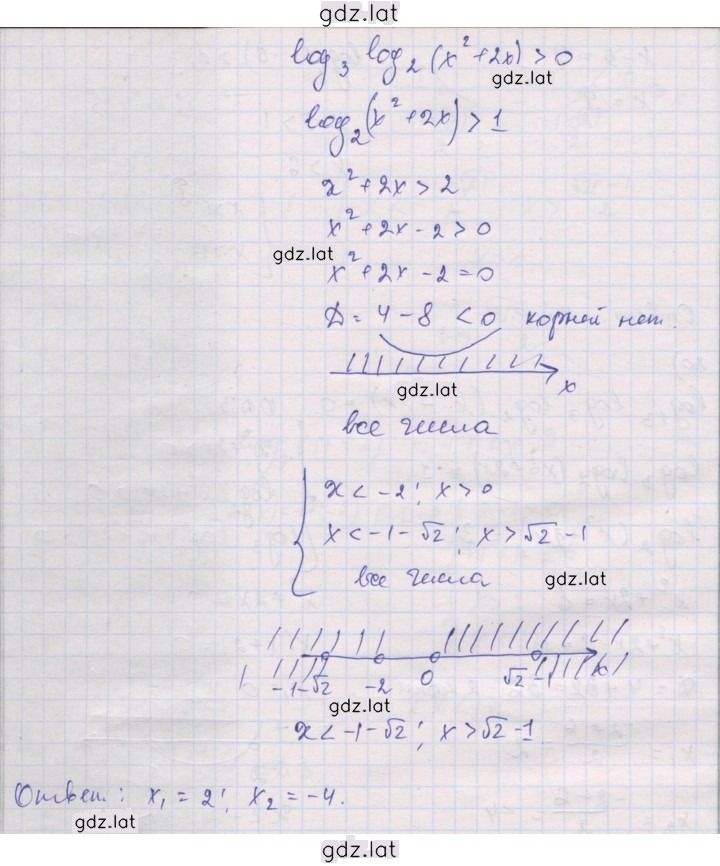 gdz.lat
log₃ log₂ (x² + 2x) > 0
gdz.lat
log₂ (x² + 2x) > 1
x² + 2x > 2
x² + 2x - 2 > 0
gdz.lat
x² + 2x - 2 = 0
D = 4 - 8 < 0 корней нет.
x
gdz.lat
все числа
x < -2; x > 0
x < -1 - √2; x > √2 - 1
все числа gdz.lat
-1-√2 -2 0 √2-1 x
gdz.lat
x < -1-√2; x > √2-1
Ответ: x₁ = 2; x₂ = -4.
gdz.lat
gdz.lat